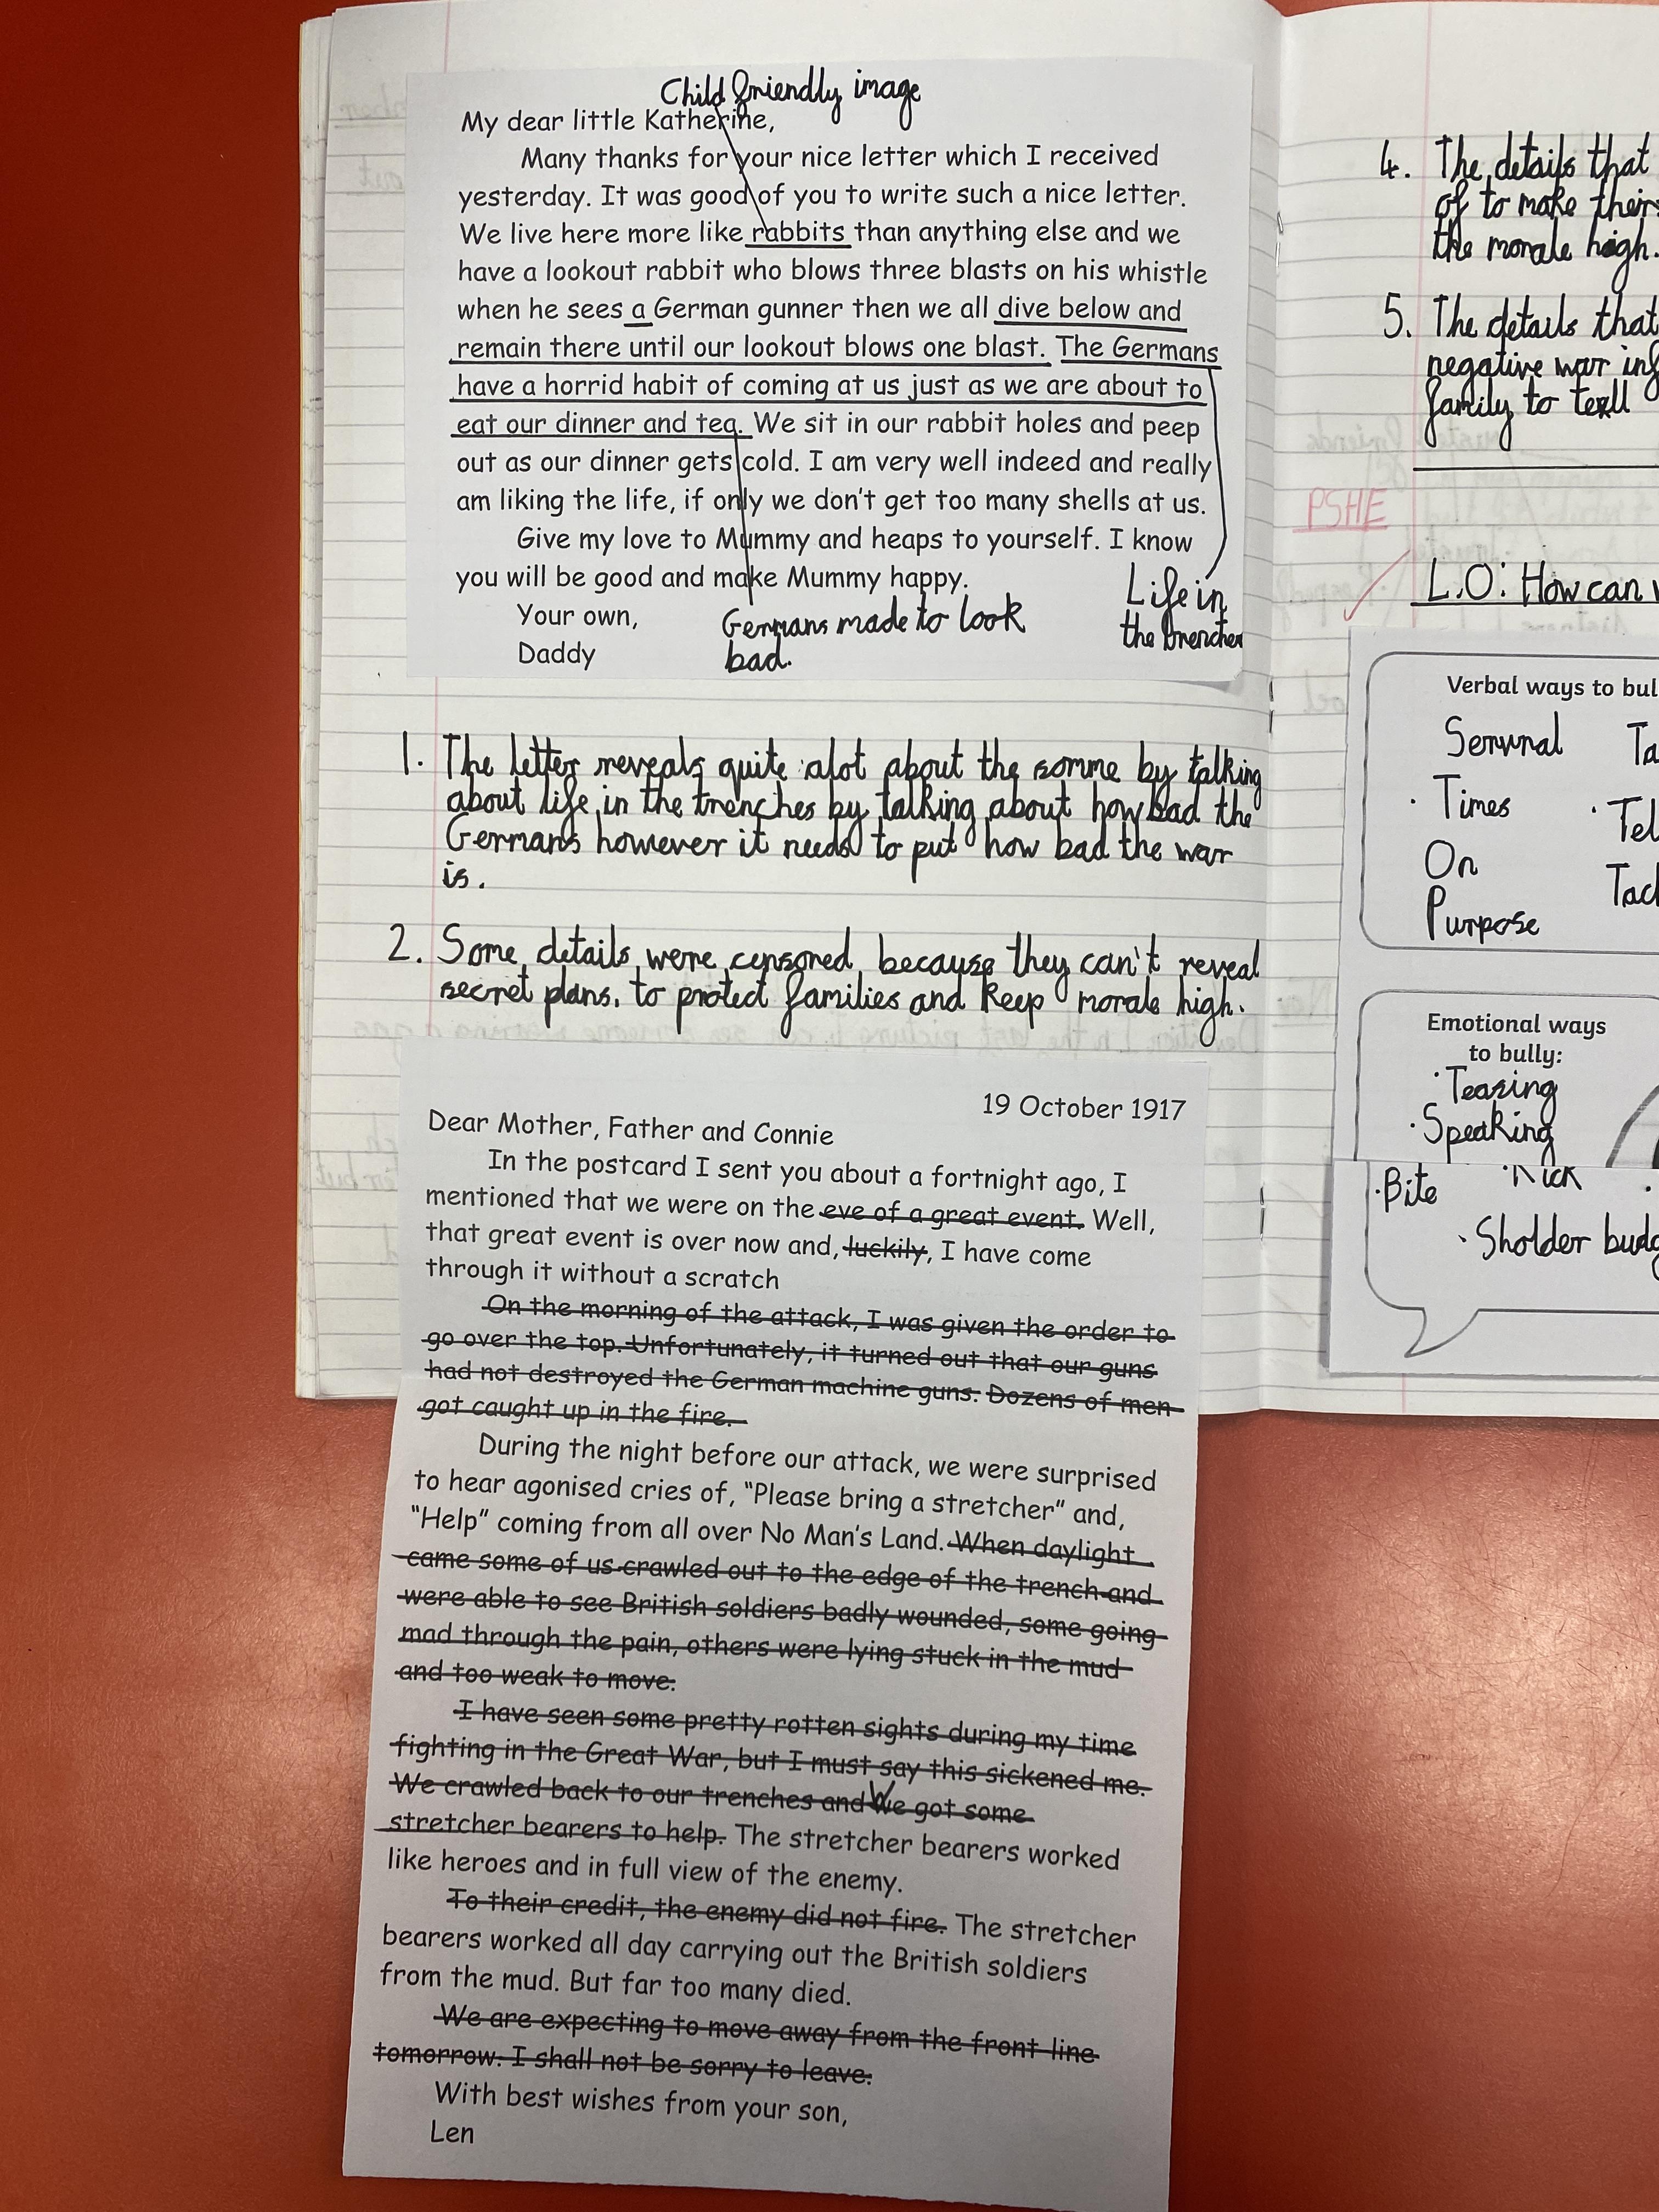 Child friendly image
My dear little Katherine,
Many thanks for your nice letter which I received
yesterday. It was good of you to write such a nice letter.
We live here more like rabbits than anything else and we
have a lookout rabbit who blows three blasts on his whistle
when he sees a German gunner then we all dive below and
remain there until our lookout blows one blast. The Germans
have a horrid habit of coming at us just as we are about to
eat our dinner and tea. We sit in our rabbit holes and peep
out as our dinner gets cold. I am very well indeed and really
am liking the life, if only we don't get too many shells at us.
Give my love to Mummy and heaps to yourself. I know
you will be good and make Mummy happy.
Your own,
Daddy
Germans made to look
bad.
Life in
the trenches
1. The letter reveals quite alot about the somme by talking
about life in the trenches by talking about how bad the
Germans however it needs to put how bad the war
is.
2. Some details were censored because they can't reveal
secret plans. to protect families and keep morale high.
19 October 1917
Dear Mother, Father and Connie
In the postcard I sent you about a fortnight ago, I
mentioned that we were on the eve of a great event. Well,
that great event is over now and, luckily, I have come
through it without a scratch
On the morning of the attack, I was given the order to
go over the top. Unfortunately, it turned out that our guns
had not destroyed the German machine guns. Dozens of men
got caught up in the fire.
During the night before our attack, we were surprised
to hear agonised cries of, "Please bring a stretcher" and,
"Help" coming from all over No Man's Land. When daylight
came some of us crawled out to the edge of the trench and
were able to see British soldiers badly wounded, some going
mad through the pain, others were lying stuck in the mud
and too weak to move.
I have seen some pretty rotten sights during my time
fighting in the Great War, but I must say this sickened me.
We crawled back to our trenches and We got some
stretcher bearers to help. The stretcher bearers worked
like heroes and in full view of the enemy.
To their credit, the enemy did not fire. The stretcher
bearers worked all day carrying out the British soldiers
from the mud. But far too many died.
We are expecting to move away from the front line
tomorrow. I shall not be sorry to leave.
With best wishes from your son,
Len
4. The details that
of to make their
the morale high.
5. The details that
negative war inf
family to tell
PSHE
L.O: How can
Verbal ways to bul
Ta
· Times
· Tel
On
Tac
Purpose
Emotional ways
to bully:
· Teasing
· Speaking
· Bite
· Kick
· Sholder budg